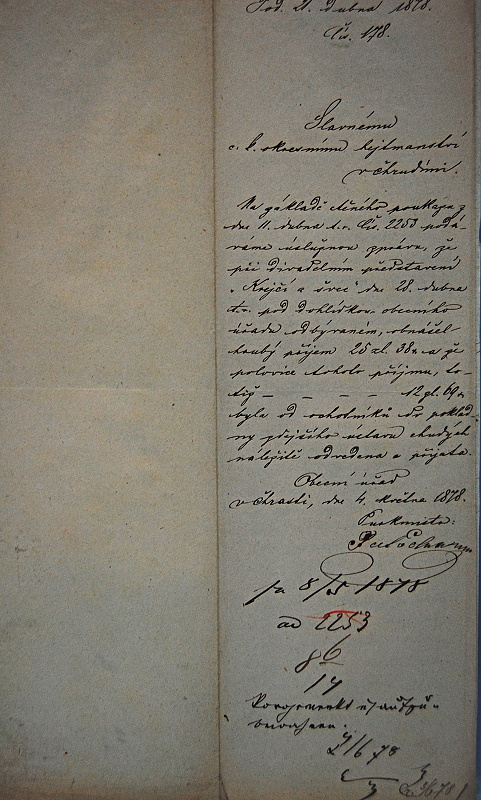 Pod. 21. dubna 1878.
Čís. 178.
Slavnému
c. k. okresnímu hejtmanství
v Chrudimi.
Na základě ctěného poukazu z
dne 11. dubna t. r. čís. 2253 podá-
váme úslužnou zprávu, že
při divadelním představení
„Krejčí a švec" dne 28. dubna
t. r. pod dohlídkou obecního
úřadu odbývaném, obnášel
hrubý příjem 25 zl. 38 kr a že
polovice tohoto příjmu, to-
tiž — — — — 12 zl. 69 kr
byla od ochotníků do poklad-
ny zdejšího ústavu chudých
náležitě odvedena a přijata.
Obecní úřad
v Chrasti, dne 4. května 1878.
Purkmistr:
8/5 1878
ad 2253
86
14
4/6 78